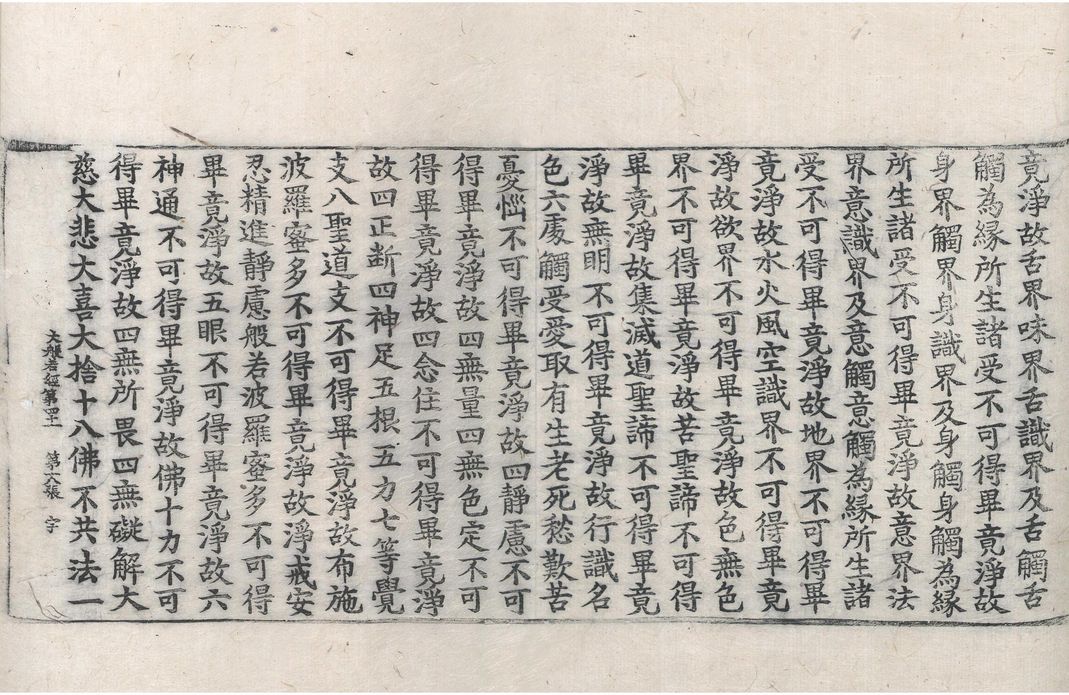 竟淨故舌界味界舌識界及舌觸舌
觸為緣所生諸受不可得畢竟淨故
身界觸界身識界及身觸身觸為緣
所生諸受不可得畢竟淨故意界法
界意識界及意觸意觸為緣所生諸
受不可得畢竟淨故地界不可得畢
竟淨故水火風空識界不可得畢竟
淨故欲界不可得畢竟淨故色無色
界不可得畢竟淨故苦聖諦不可得
畢竟淨故集滅道聖諦不可得畢竟
淨故無明不可得畢竟淨故行識名
色六處觸受愛取有生老死愁歎苦
憂惱不可得畢竟淨故四靜慮不可
得畢竟淨故四無量四無色定不可
得畢竟淨故四念住不可得畢竟淨
故四正斷四神足五根五力七等覺
支八聖道支不可得畢竟淨故布施
波羅蜜多不可得畢竟淨故淨戒安
忍精進靜慮般若波羅蜜多不可得
畢竟淨故五眼不可得畢竟淨故六
神通不可得畢竟淨故佛十力不可
得畢竟淨故四無所畏四無礙解大
慈大悲大喜大捨十八佛不共法一
大般若經第四十一 第六張 宇